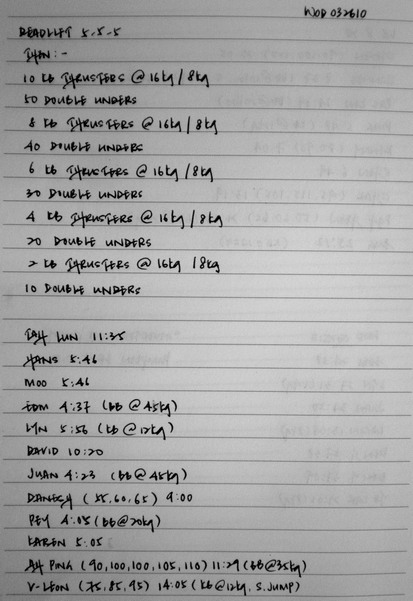 WOD 032610
DEADLIFT 5-5-5
THEN:-
10 KB THRUSTERS @ 16kg / 8kg
50 DOUBLE UNDERS
8 KB THRUSTERS @ 16kg / 8kg
40 DOUBLE UNDERS
6 KB THRUSTERS @ 16kg / 8kg
30 DOUBLE UNDERS
4 KB THRUSTERS @ 16kg / 8kg
20 DOUBLE UNDERS
2 KB THRUSTERS @ 16kg / 8kg
10 DOUBLE UNDERS
LUN 11:35
HANS 5:46
MOO 5:46
EDM 4:37 (BB @ 45kg)
LYN 5:56 (KB @ 12kg)
DAVID 10:20
JUAN 4:23 (BB @ 45kg)
(55,60,65) 9:00
PEY 4:05 (BB @ 20kg)
KAREN 5:05
AH PING (90,100,100,105,110) 11:29 (BB @ 35kg)
V-LEON (75,85,95) 14:05 (KB @ 12kg, S.JUMP)